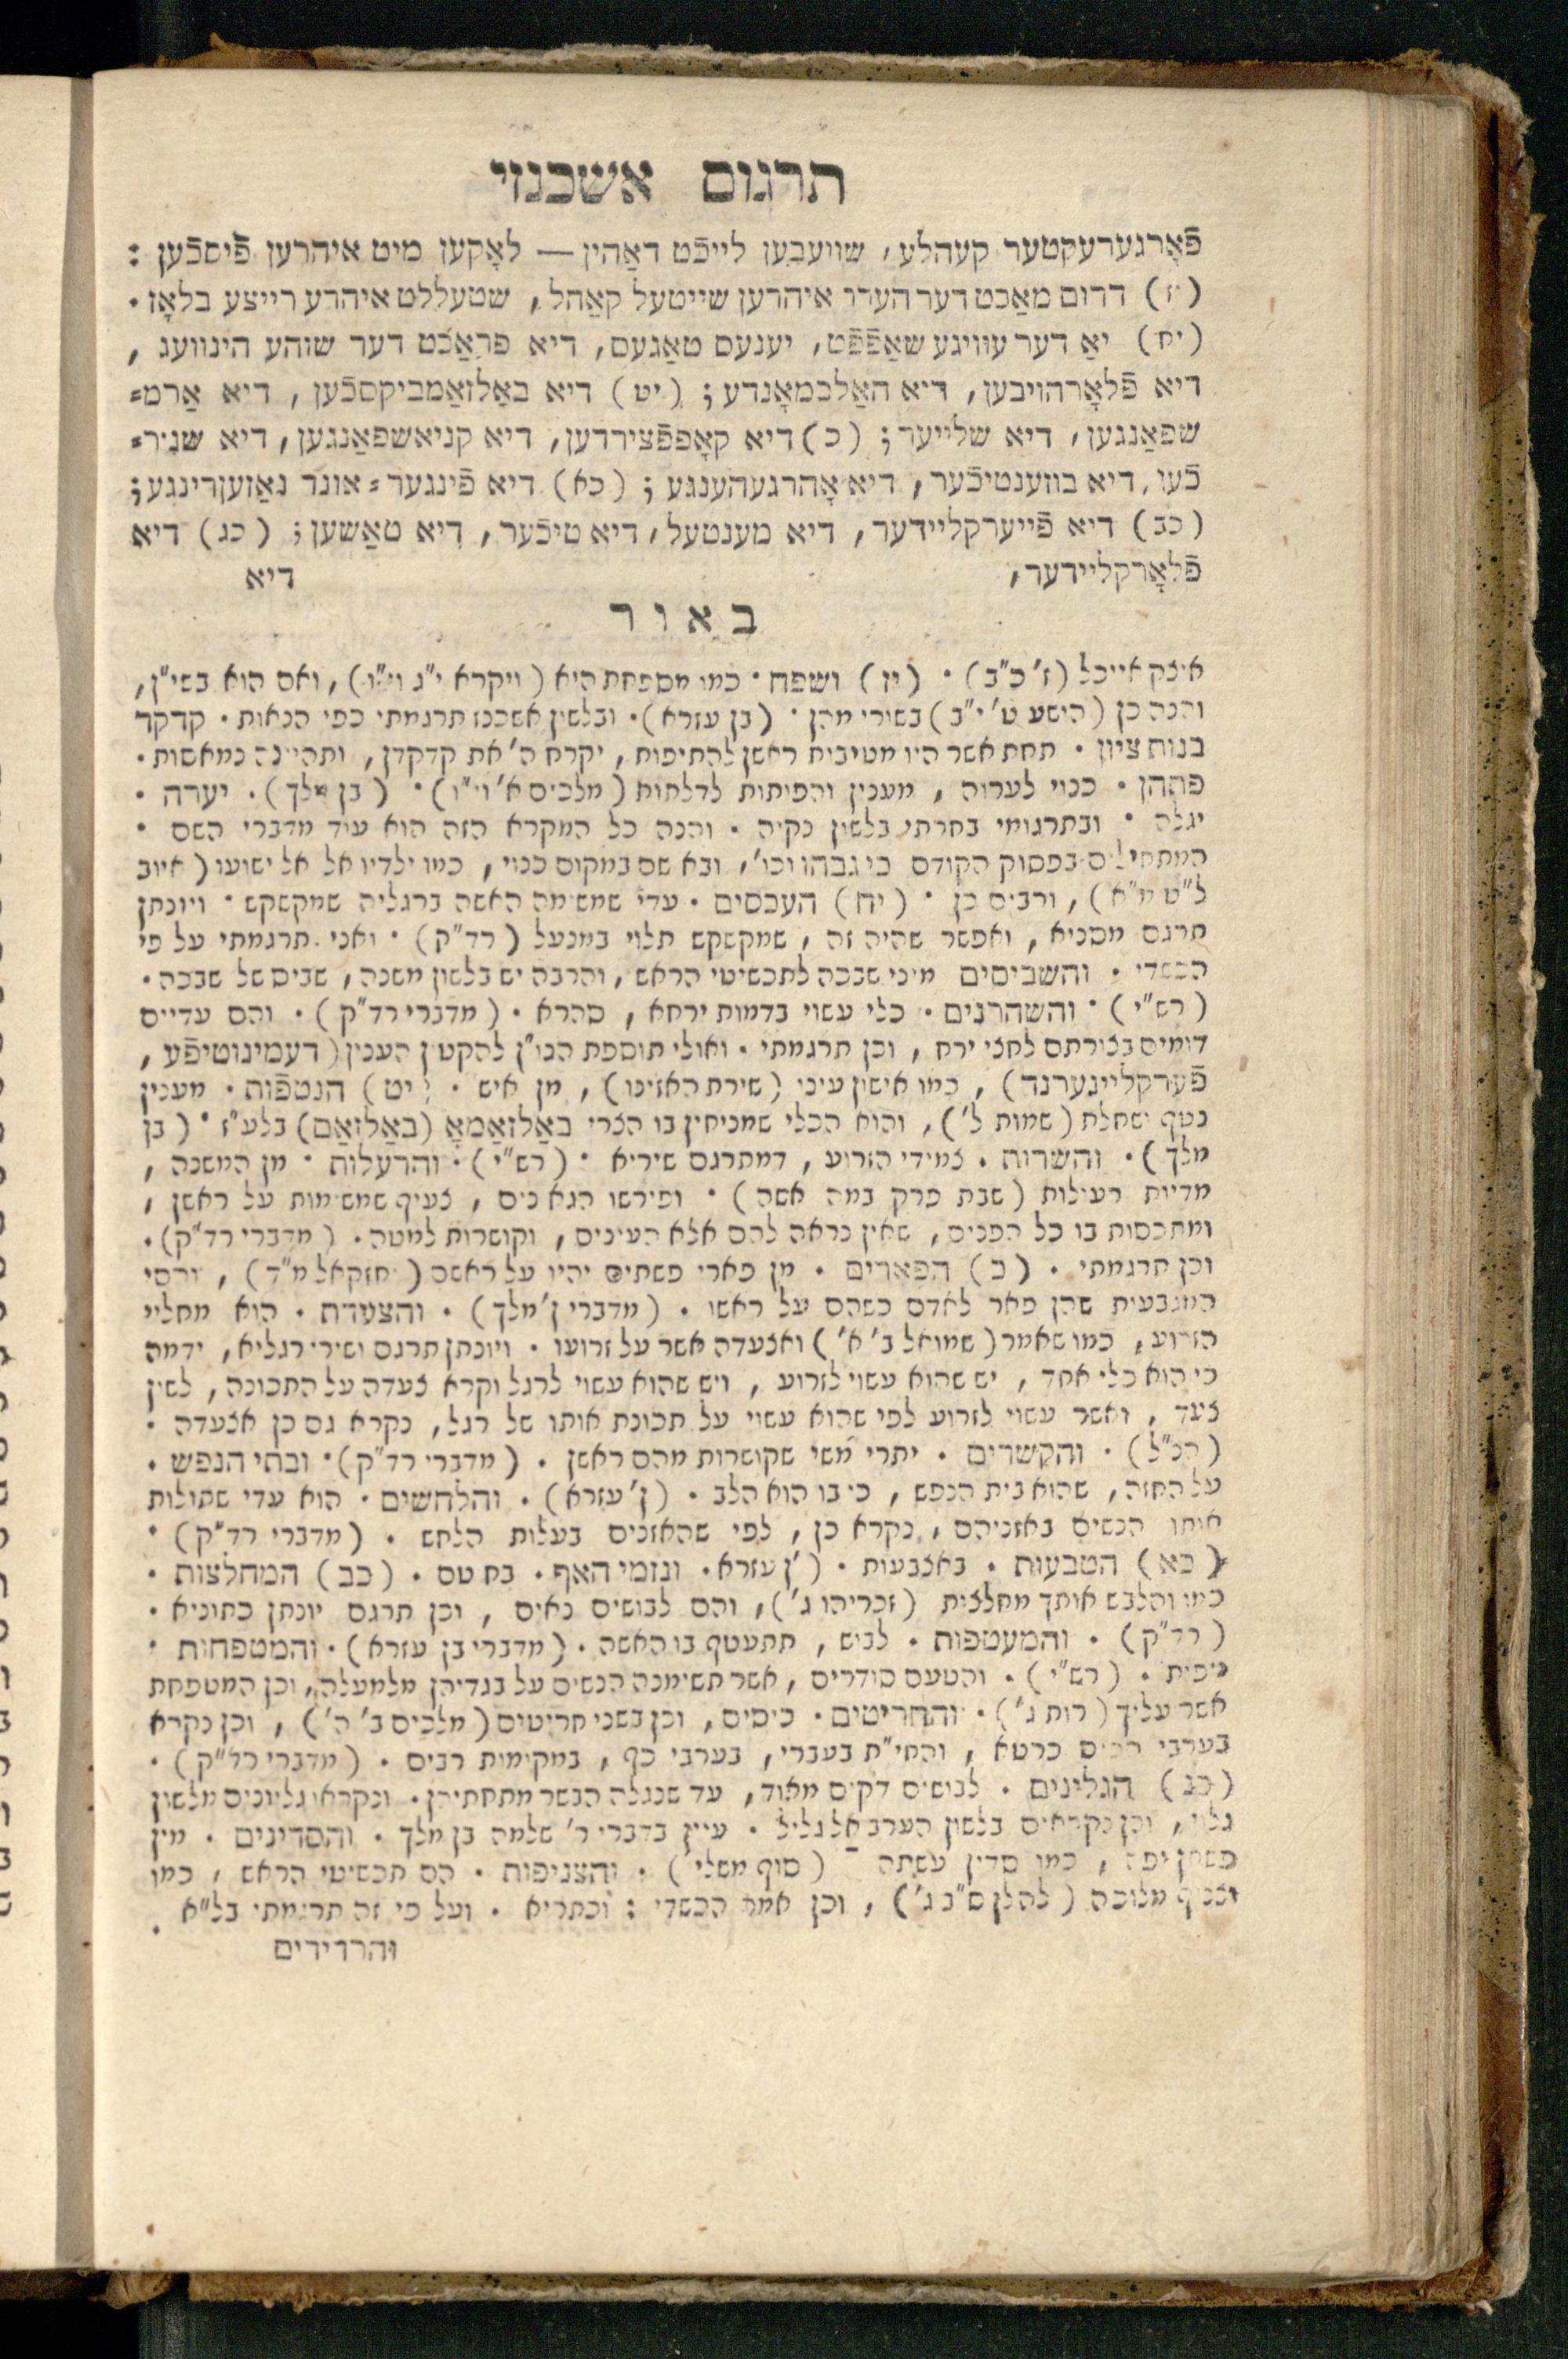 תרגום אשכנזי
פֿאָרגערעקטער קעהלע, שוועבען לייכֿט דאַהין — לאָקען מיט איהרען פֿיסכֿען :
(יז) דרום מאַכט דער הערר איהרען שייטעל קאַהל, שטעללט איהרע רייצע בלאָז .
(יח) יאַ דער עוויגע שאַפֿפֿט, יענעם טאַגעם, דיא פראַכֿט דער שוהע הינוועג ,
דיא פֿלאָרהויבען, דיא האַלבמאָנדע ; (יט) דיא באַלזאַמביקסכֿען, דיא אַרמ=
שפאַנגען, דיא שלייער ; (כ) דיא קאָפפֿצירדען, דיא קניאשפאַנגען, דיא שניר=
כֿען, דיא בוזענטיכֿער, דיא אָהרגעהענגע ; (כא) דיא פֿינגער= אונד נאַזענרינגע ;
(כב) דיא פֿייערקליידער, דיא מענטעל, דיא טיכֿער, דיא טאַשען ; (כג) דיא
פֿלאָרקליידער, דיא
באור
אינק אייכל (ז' כ"ב) . (יז) ושפח . כמו מספחת היא (ויקרא י"ג וי"ו), ואם הוא בשי"ן,
והנה כן (הושע ט' י"ב) בשורי מהן . (בן עזרא). ובלשון אשכנז תרגמתי כפי הנאות . קדקד
בנות ציון . תחת אשר היו מטיבות ראשן להתיפות, יקרח ה' את קדקדן, ותהיינה נמאסות .
פתהן . כנוי לערוה, מענין והפותות לדלתות (מלכים א' וי"ו) . (בן מלך). יערה .
יגלה . ובתרגומי בחרתי בלשון נקיה . והנה כל המקרא הזה הוא עוד מדברי השם .
המתחילים בפסוק הקודם כי גבהו וכו', ובא שם במקום כנוי, כמו ילדיו אל אל ישועו (איוב
ל"ט מ"א), ורבים כן . (יח) העכסים . עדי שמשימה האשה ברגליה שמקשקש . ויונתן
תרגם מסניא, ואפשר שהיה זה, שמקשקש תלוי במנעל (רד"ק) . ואני תרגמתי על פי
הכשדי . והשביסים מיני שבכה לתכשיטי הראש, והרבה יש בלשון משנה, שביס של שבכה .
(רש"י) . והשהרנים . כלי עשוי בדמות ירחא, סהרא . (מדברי רד"ק) . והם עדיים
דומים בצורתם לחצי ירח, וכן תרגמתי . ואולי תוספת הנו"ן להקטין הענין (דעמינוטיפֿע,
פֿערקליינערנד), כמו אישון עיני (שירת האזינו), מן איש . (יט) הנטפֿות . מענין
נטף ושחלת (שמות ל'), והוא הכלי שמניחין בו הצרי באַלזאַמאָ (באַלזאַם) בלע"ז . (בן
מלך) . והשרות . צמידי הזרוע, דמתרגם שיריא . (רש"י) . והרעלות . מן המשנה,
מדיות רעולות (שבת פרק במה אשה) . ופירשו הגאונים, צעיף שמשימות על ראשן,
ומתכסות בו כל הפנים, שאין נראה להם אלא העינים, וקושרות למטה . (מדברי רד"ק).
וכן תרגמתי . (כ) הפארים . מן פארי פשתים יהיו על ראשם (יחזקאל מ"ד),
המגבעות שהן פאר לאדם כשהם על ראשו . (מדברי ן' מלך) . והצעדת . הוא מחליי
הזרוע, כמו שאמר (שמואל ב' א') ואצעדה אשר על זרועו . ויונתן תרגם ושירי רגליא, ידמה
כי הוא כלי אחד, יש שהוא עשוי לזרוע, ויש שהוא עשוי לרגל וקרא צעדה על התכונה, לשון
צעד, ואשר עשוי לזרוע לפי שהוא עשוי על תכונת אותו של רגל, נקרא גם כן אצעדה .
(הנ"ל) . והקשרים . יתרי משי שקושרות מהם ראשן . (מדברי רד"ק) . ובתי הנפש .
על החזה, שהוא בית הנפש, כי בו הוא הלב . (ן' עזרא) . והלחשים . הוא עדי שתולות
אותו הנשים באזניהם, נקרא כן, לפי שהאזנים בעלות הלחש . (מדברי רד"ק) .
(כא) הטבעות . באצבעות . (ן' עזרא. ונזמי האף . בחטם . (כב) המחלצות .
כמו והלבש אותך מחלצות (זכריהו ג'), והם לבושים נאים, וכן תרגם יונתן כתוניא .
(רד"ק) . והמעטפות . לבוש, תתעטף בו האשה . (מדברי בן עזרא) . והמטפחות .
(רש"י) . והטעם סודרים, אשר תשימנה הנשים על בגדיהן מלמעלה, וכן המטפחת
אשר עליך (רות ג') . והחריטים . כיסים, וכן בשני חריטים (מלכים ב' ה'), וכן נקרא
בערבי הכיס כרטא, והחי"ת בעברי, בערבי כף, במקומות רבים . (מדברי רד"ק) .
(כג) הגלינים . לבושים דקים מאוד, עד שנגלה הבשר מתחתיהן . ונקראו גליונים מלשון
גלוי, וכן נקראים בלשון הערב אלגליל . עיין בדברי ר' שלמה בן מלך . והסדינים . מין
פשתן יפה, כמו סדין עשתה (סוף משלי) . והצניפות . הם תכשיטי הראש, כמו
וצניף מלוכה (להלן ס"ב ג'), וכן אמר הכשדי : וכתריא . ועל פי זה תרגמתי בל"א .
והרדידים